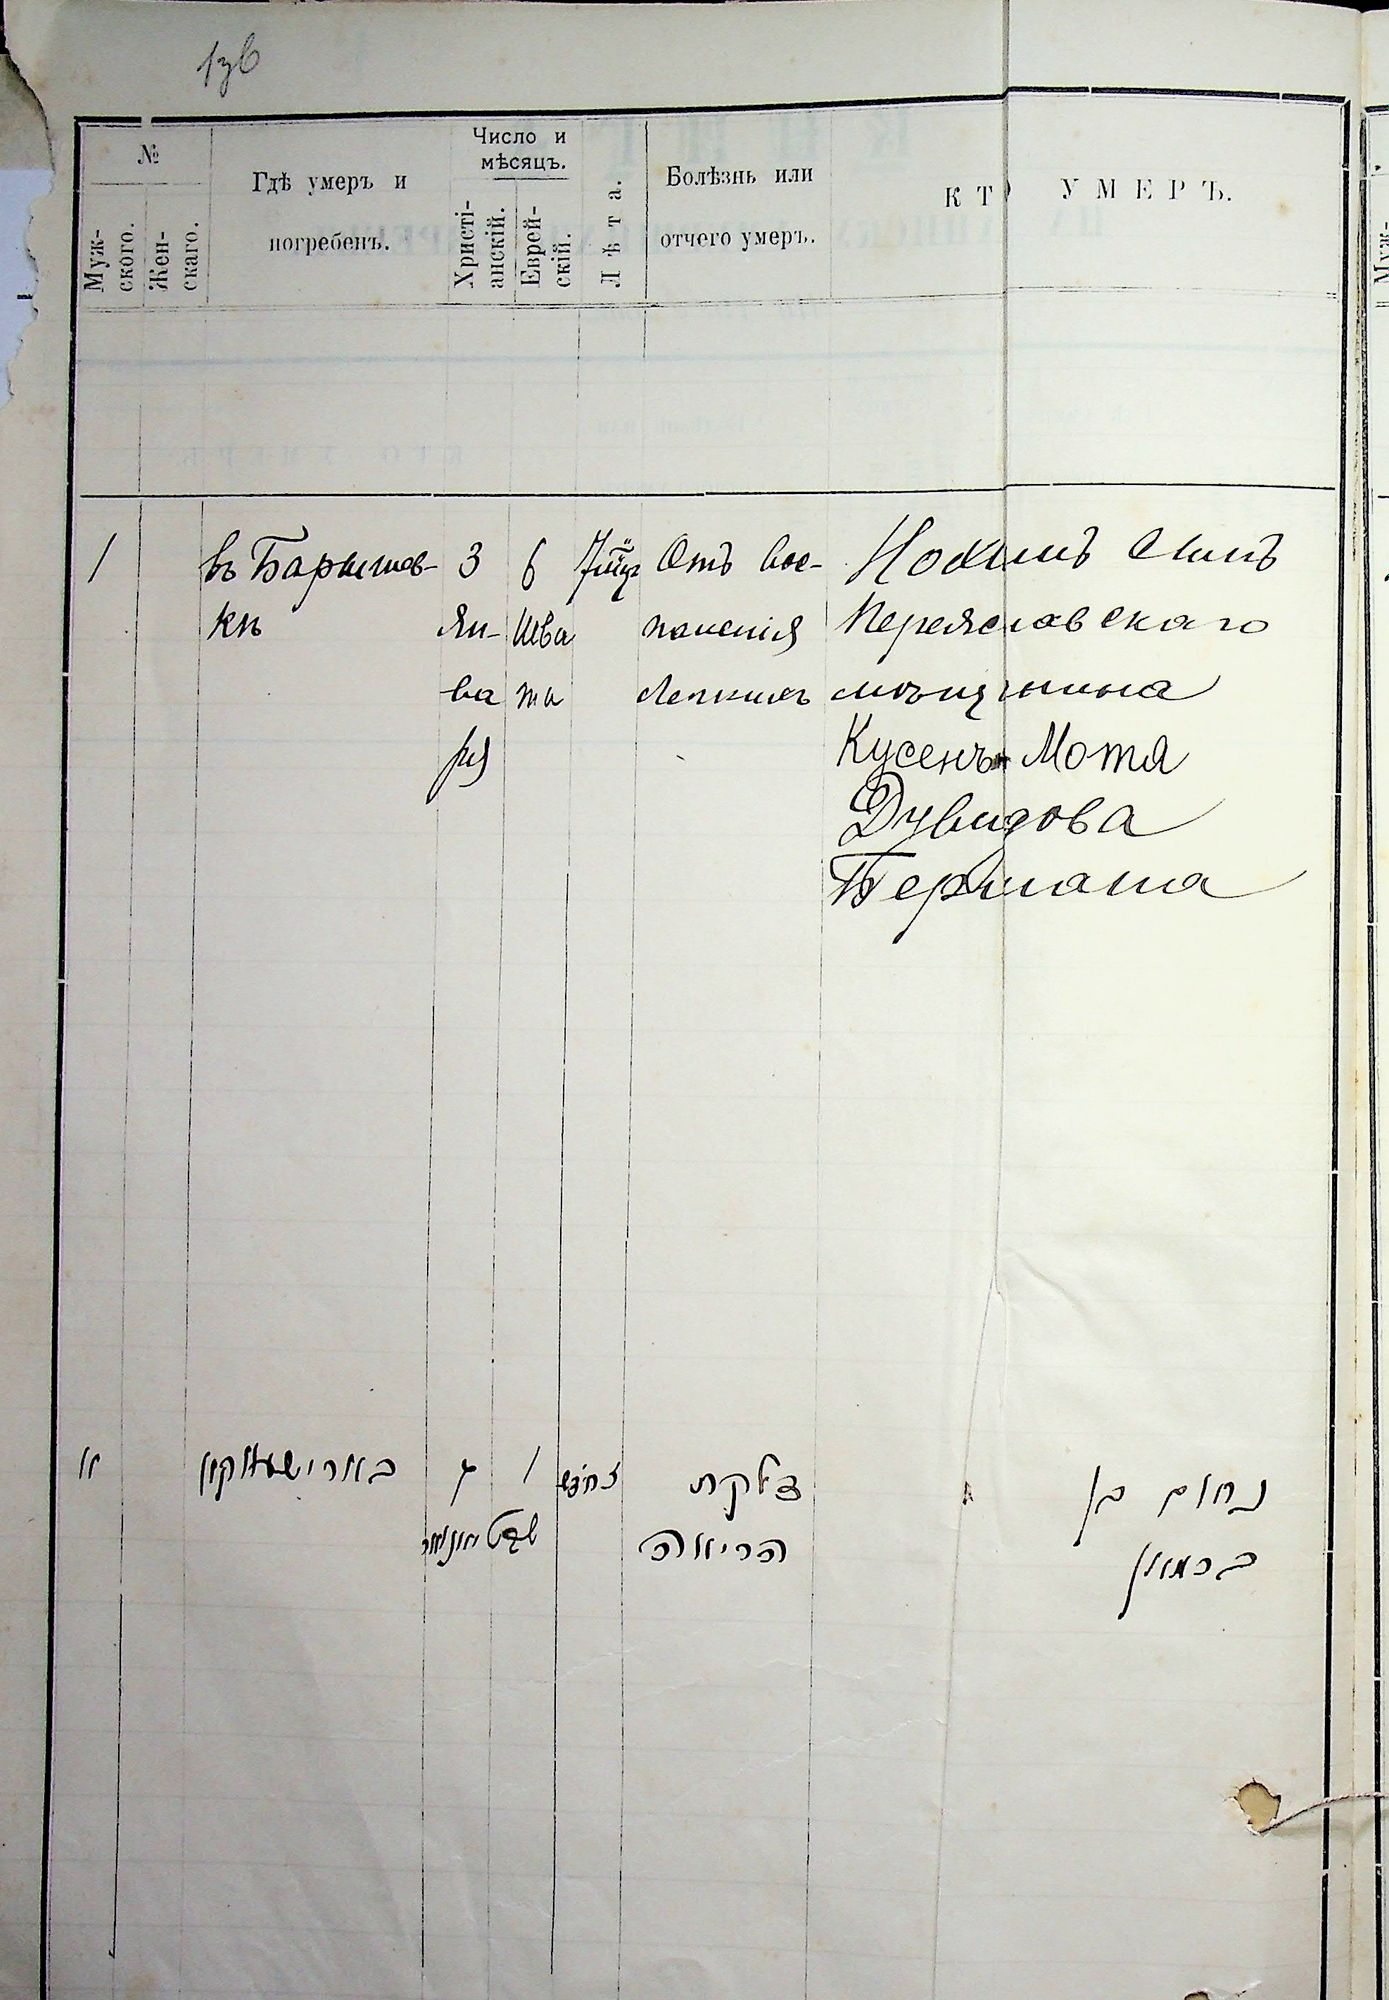 №
Муж-
ского.
Жен-
скаго.
Гдѣ умеръ и
погребенъ.
Число и
мѣсяцъ.
Христі-
анскій.
Еврей-
скій.
Лѣта.
Болѣзнь или
отчего умеръ.
КТО УМЕРЪ.
1
въ Барышев-
кѣ
3
Ян-
ва
ря
6
Шва
та
Отъ вос-
паленія
легкихъ
Нохимъ сынъ
Переяславскаго
мѣщанина
Кусель Мотя
Дувидова
Бермана
"
בארישעווקע
ג
יאנואר
ו
שבט
דלקת
הריאה
נחום בן
בערמאן